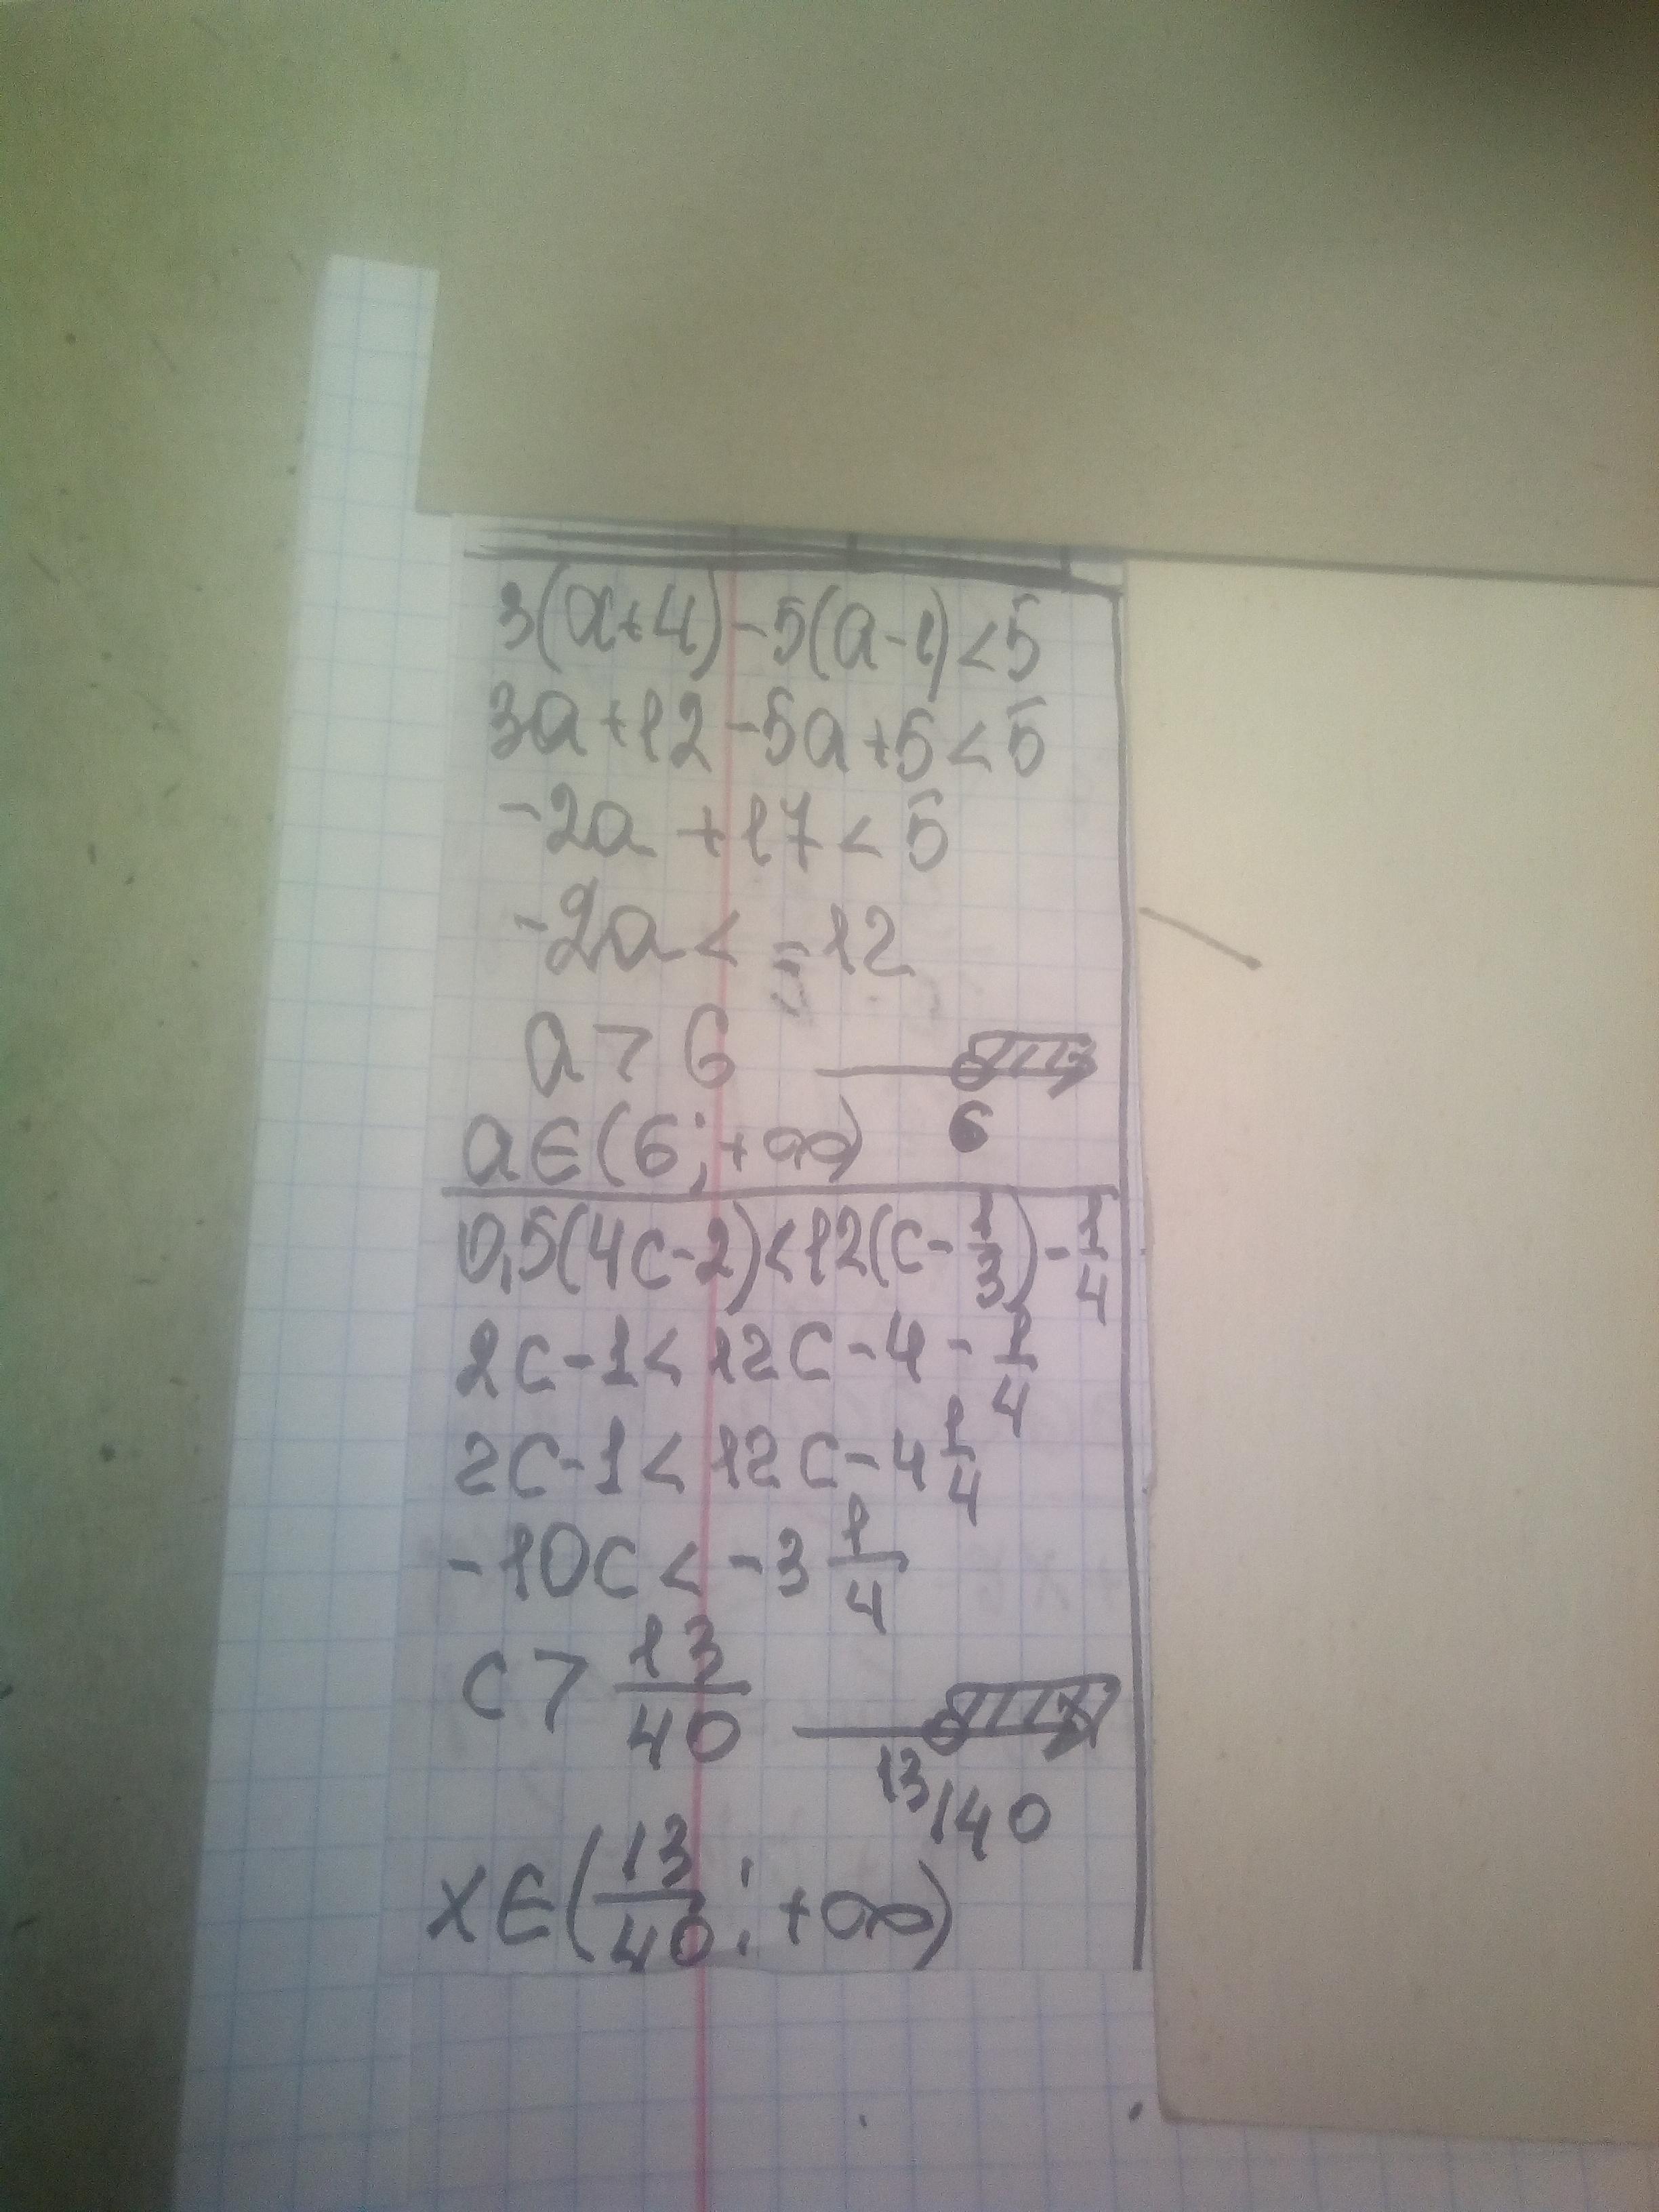 3(a+4)-5(a-1)<5
3a+12-5a+5<5
-2a+17<5
-2a<-12
a>6
6
a∈(6;+∞)
0,5(4c-2)<12(c-1/3)-1/4
2c-1<12c-4-1/4
2c-1<12c-4 1/4
-10c<-3 1/4
c>13/40
13/40
x∈(13/40;+∞)